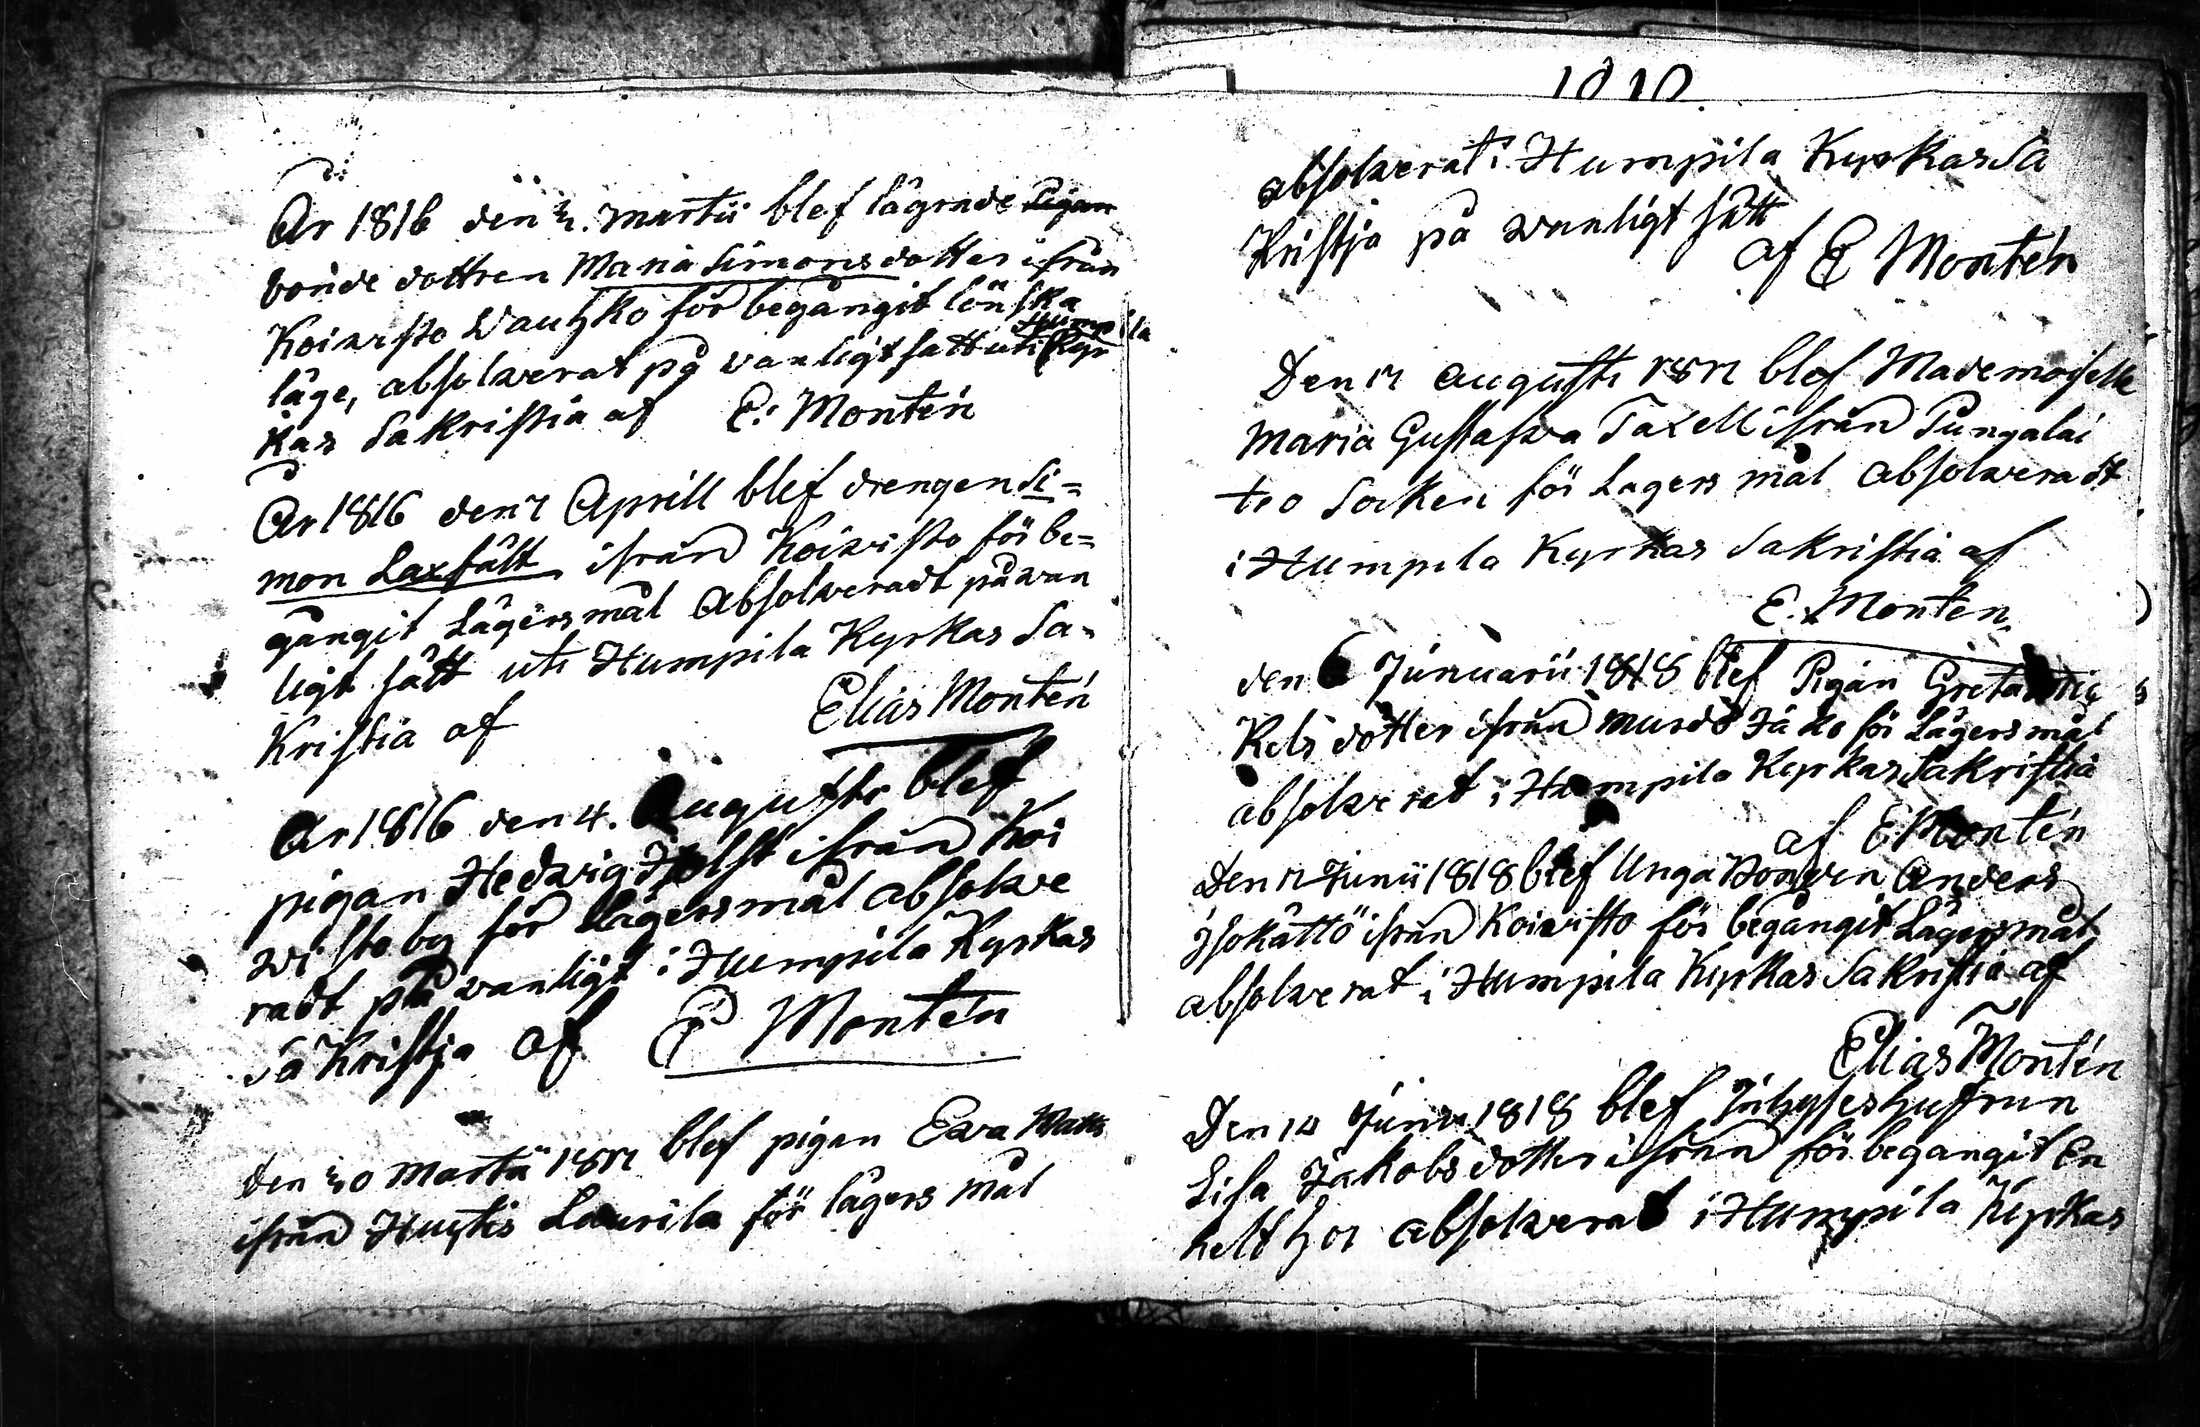 År 1816 den 2. Martii blef lägrade Pigan
bonde dottren Maria Simonsdotter ifrån
Koivisto Wauhko för begångit lönska
läge, absolverat på vanligt sätt uti Humpila Kyr
kas Sakristia af E: Montén
År 1816 den 7 Aprill blef drengen Si=
mon Laxfält ifrån Koivisto för be=
gångit Lägersmål Absolveradt på van
ligt sätt uti Humpila Kyrkas Sa=
Kristia af Elias Montén
År 1816 den 4. Augusti blef
pigan Hedvig ifrån Koi
visto by för Lägersmål absolve
radt på vanligt i Humpila Kyrkas
Sakristja af E Montén
Den 20 Martii 1817 blef pigan Eva Matts
ifrån Huhtis Laurila för lägers mål
1818
absolverat i Humpila Kyrkas Sa
Kristja på vanligt sätt
af E Montén
Den 17 augusti 1817 blef Mademoiselle
Maria Gustafva Taxell ifrån Pungalai
tio Socken för Lagers mål absolveradt
i Humpila Kyrkas Sakristia af
E. Monten,
den 6 Januarii 1818 blef Pigan Greta Mic
kels dotter ifrån Murdo Jako för Lägersmål
absolverat i Humpila Kyrkas Sakristia
af E Montén
Den 17 Junii 1818 blef Unga Bonden Anders
Isokåttö ifrån Koivisto för begångit Lägersmål
absolverat i Humpila Kyrkas Sakristia af
Elias Montén
Den 14 Junii 1818 blef Inhyseshustrun
Lisa Jakobsdotter ifrån för begangit En
kelt hor absolverat i Humpila Kyrkas